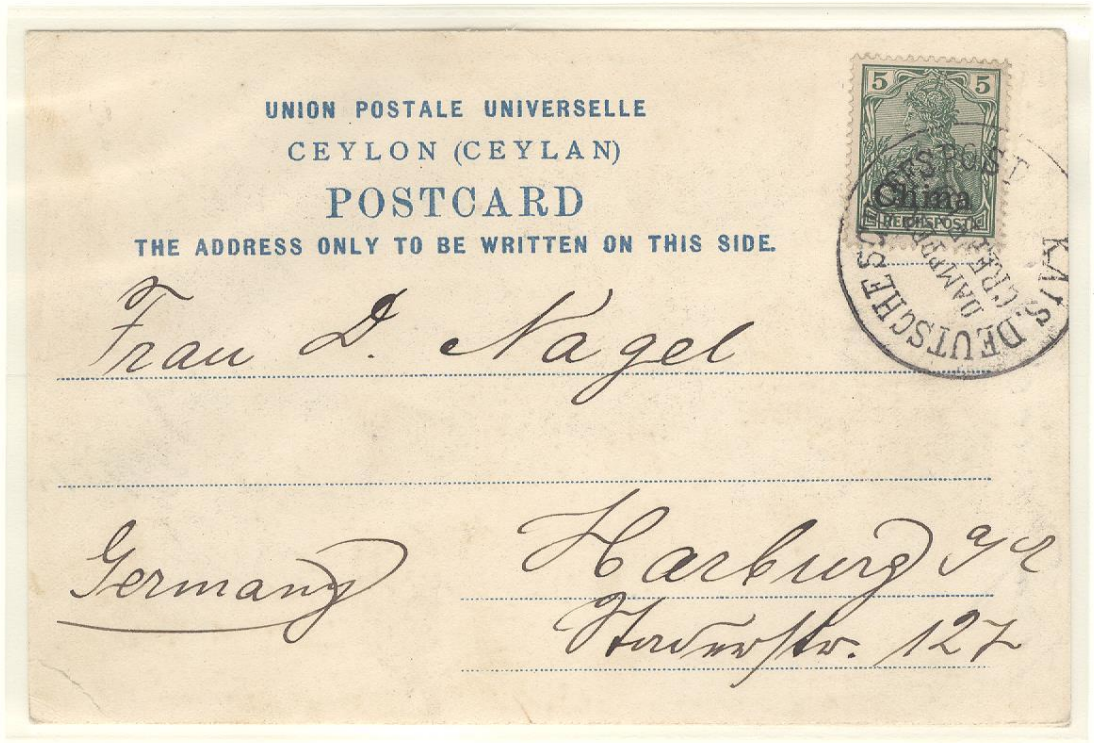 UNION POSTALE UNIVERSELLE
CEYLON (CEYLAN)
POSTCARD
THE ADDRESS ONLY TO BE WRITTEN ON THIS SIDE.
5 5
China
REICHSPOST
KAIS. DEUTSCHE
POST
Frau D. Nagel
Germany
Harburg a/E
Staderstr. 127